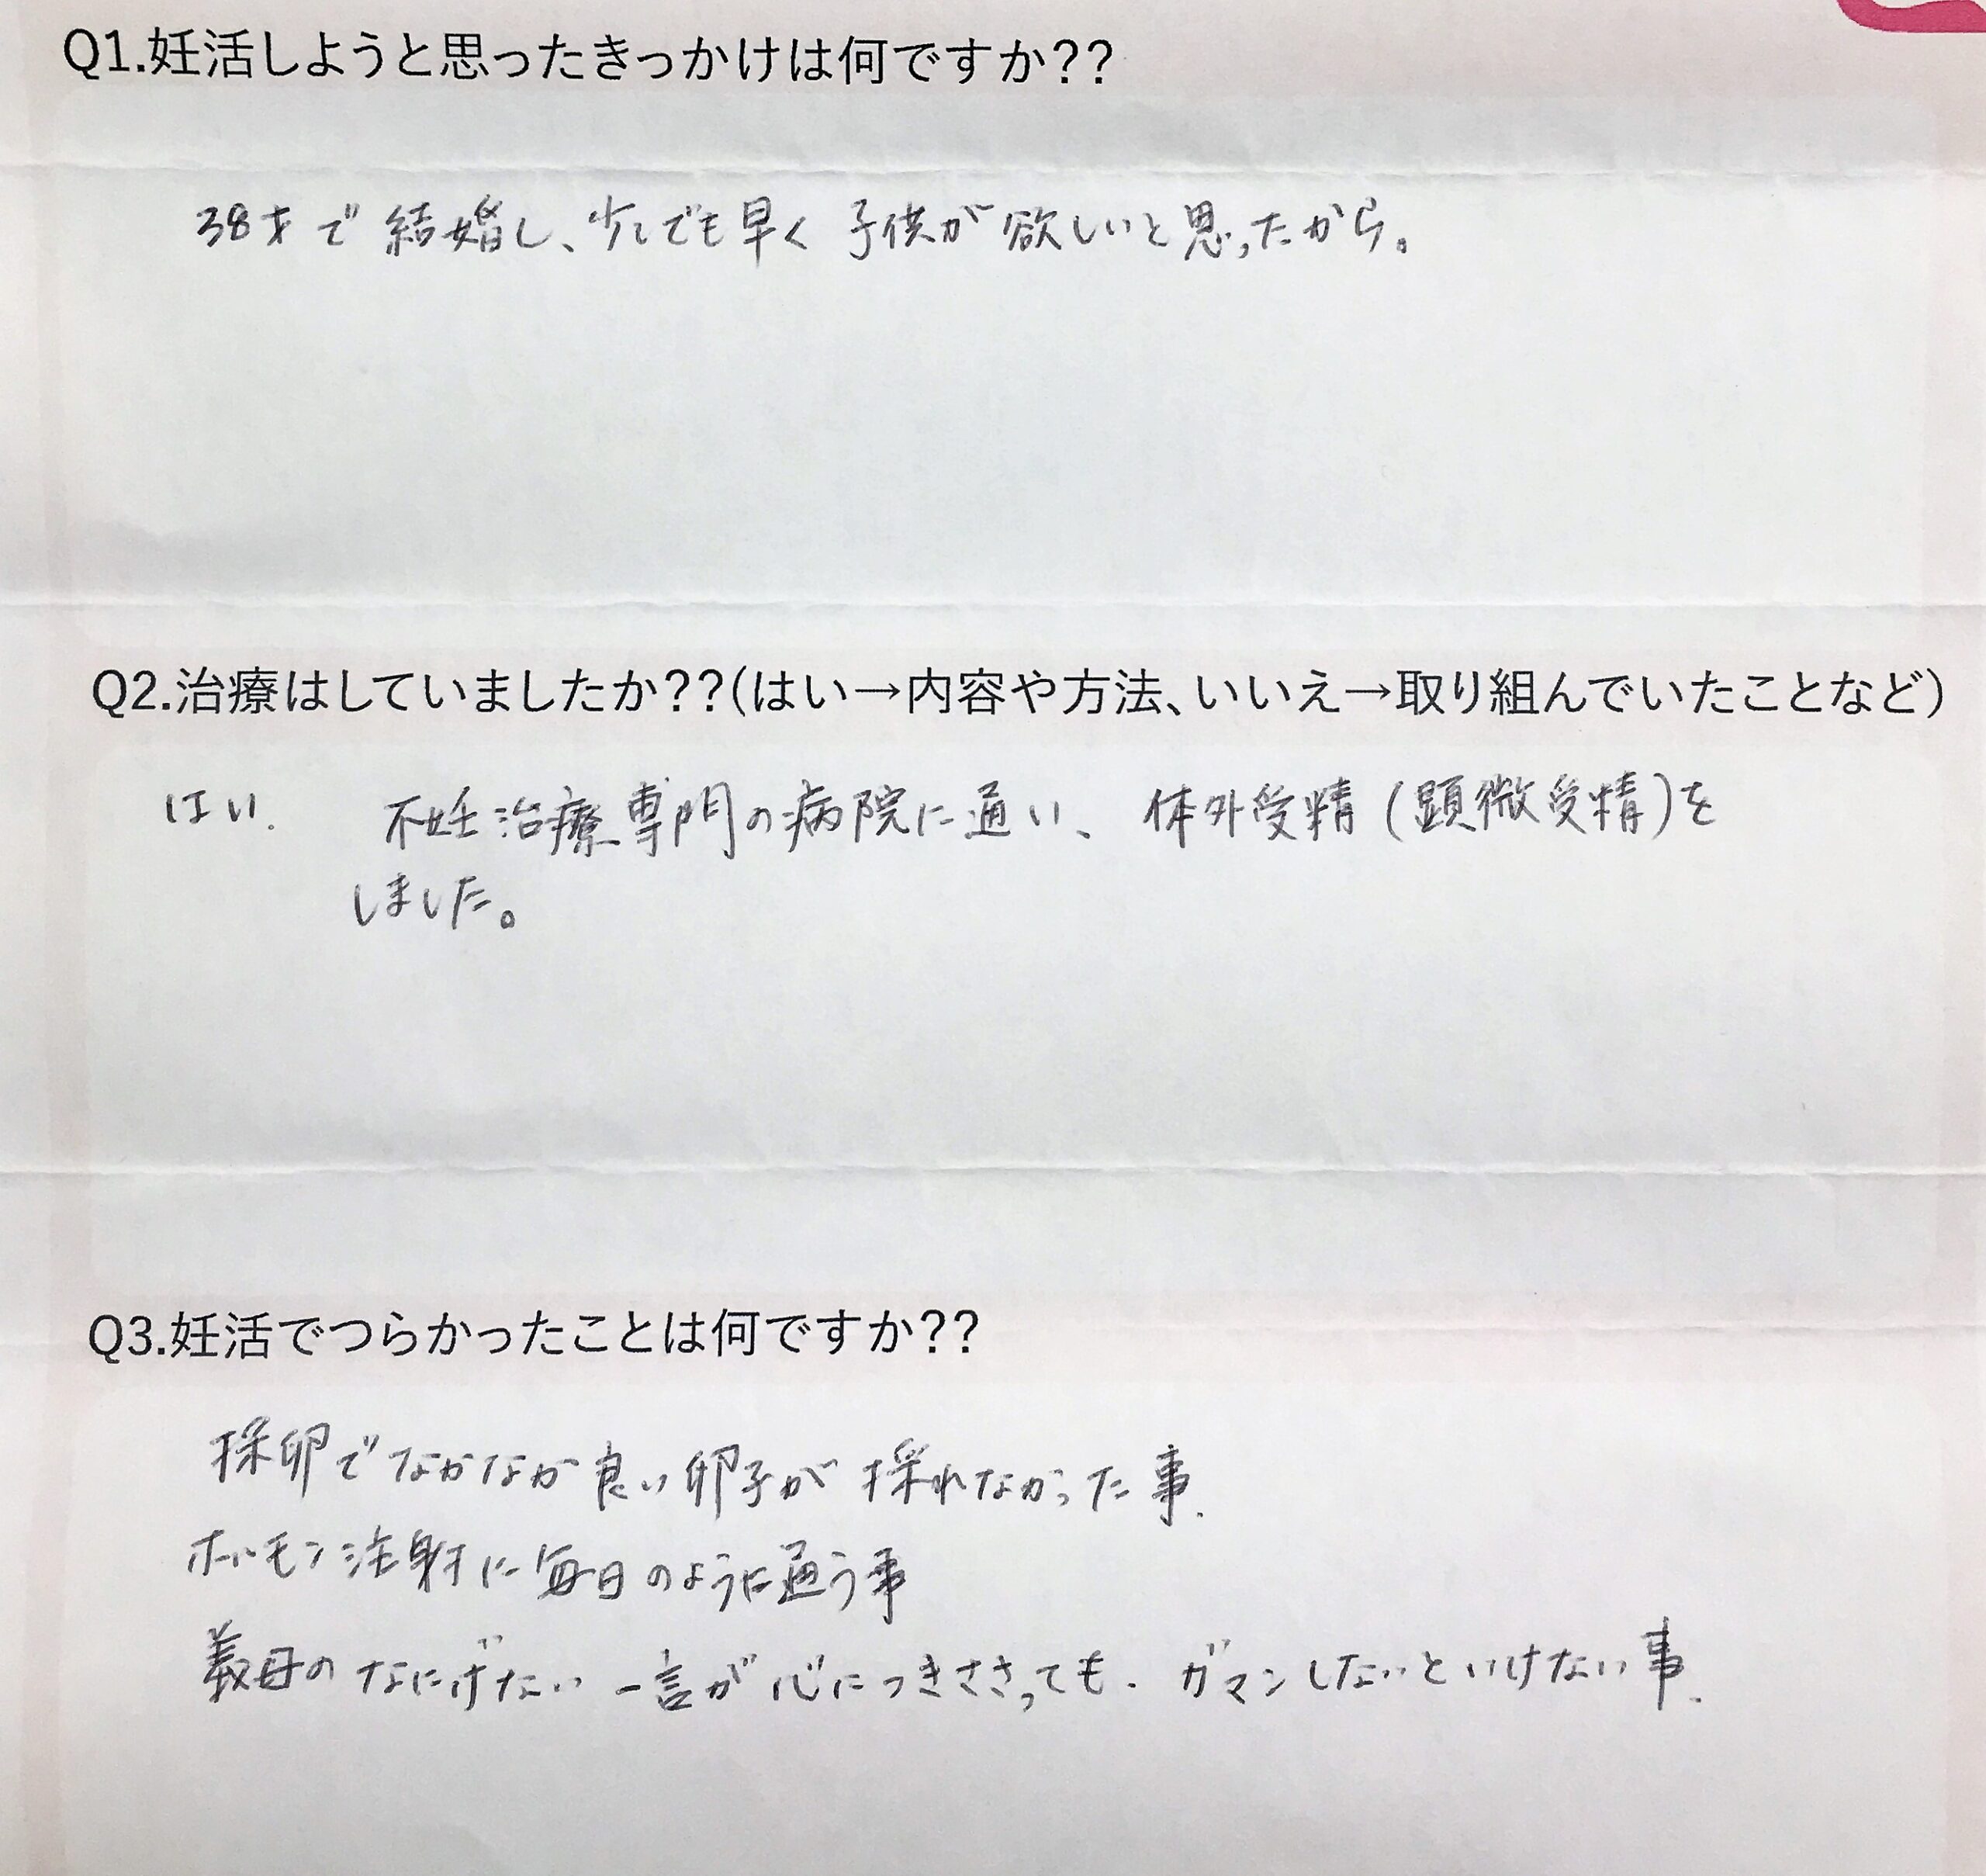 Q1.妊活しようと思ったきっかけは何ですか??
38才で結婚し、少しでも早く子供が欲しいと思ったから。
Q2.治療はしていましたか??(はい→内容や方法、いいえ→取り組んでいたことなど)
はい. 不妊治療専門の病院に通い、体外受精(顕微受精)を
しました。
Q3.妊活でつらかったことは何ですか??
採卵でなかなか良い卵子が採れなかった事.
ホルモン注射に毎日のように通う事
義母のなにげない一言が心につきささっても. ガマンしないといけない事.